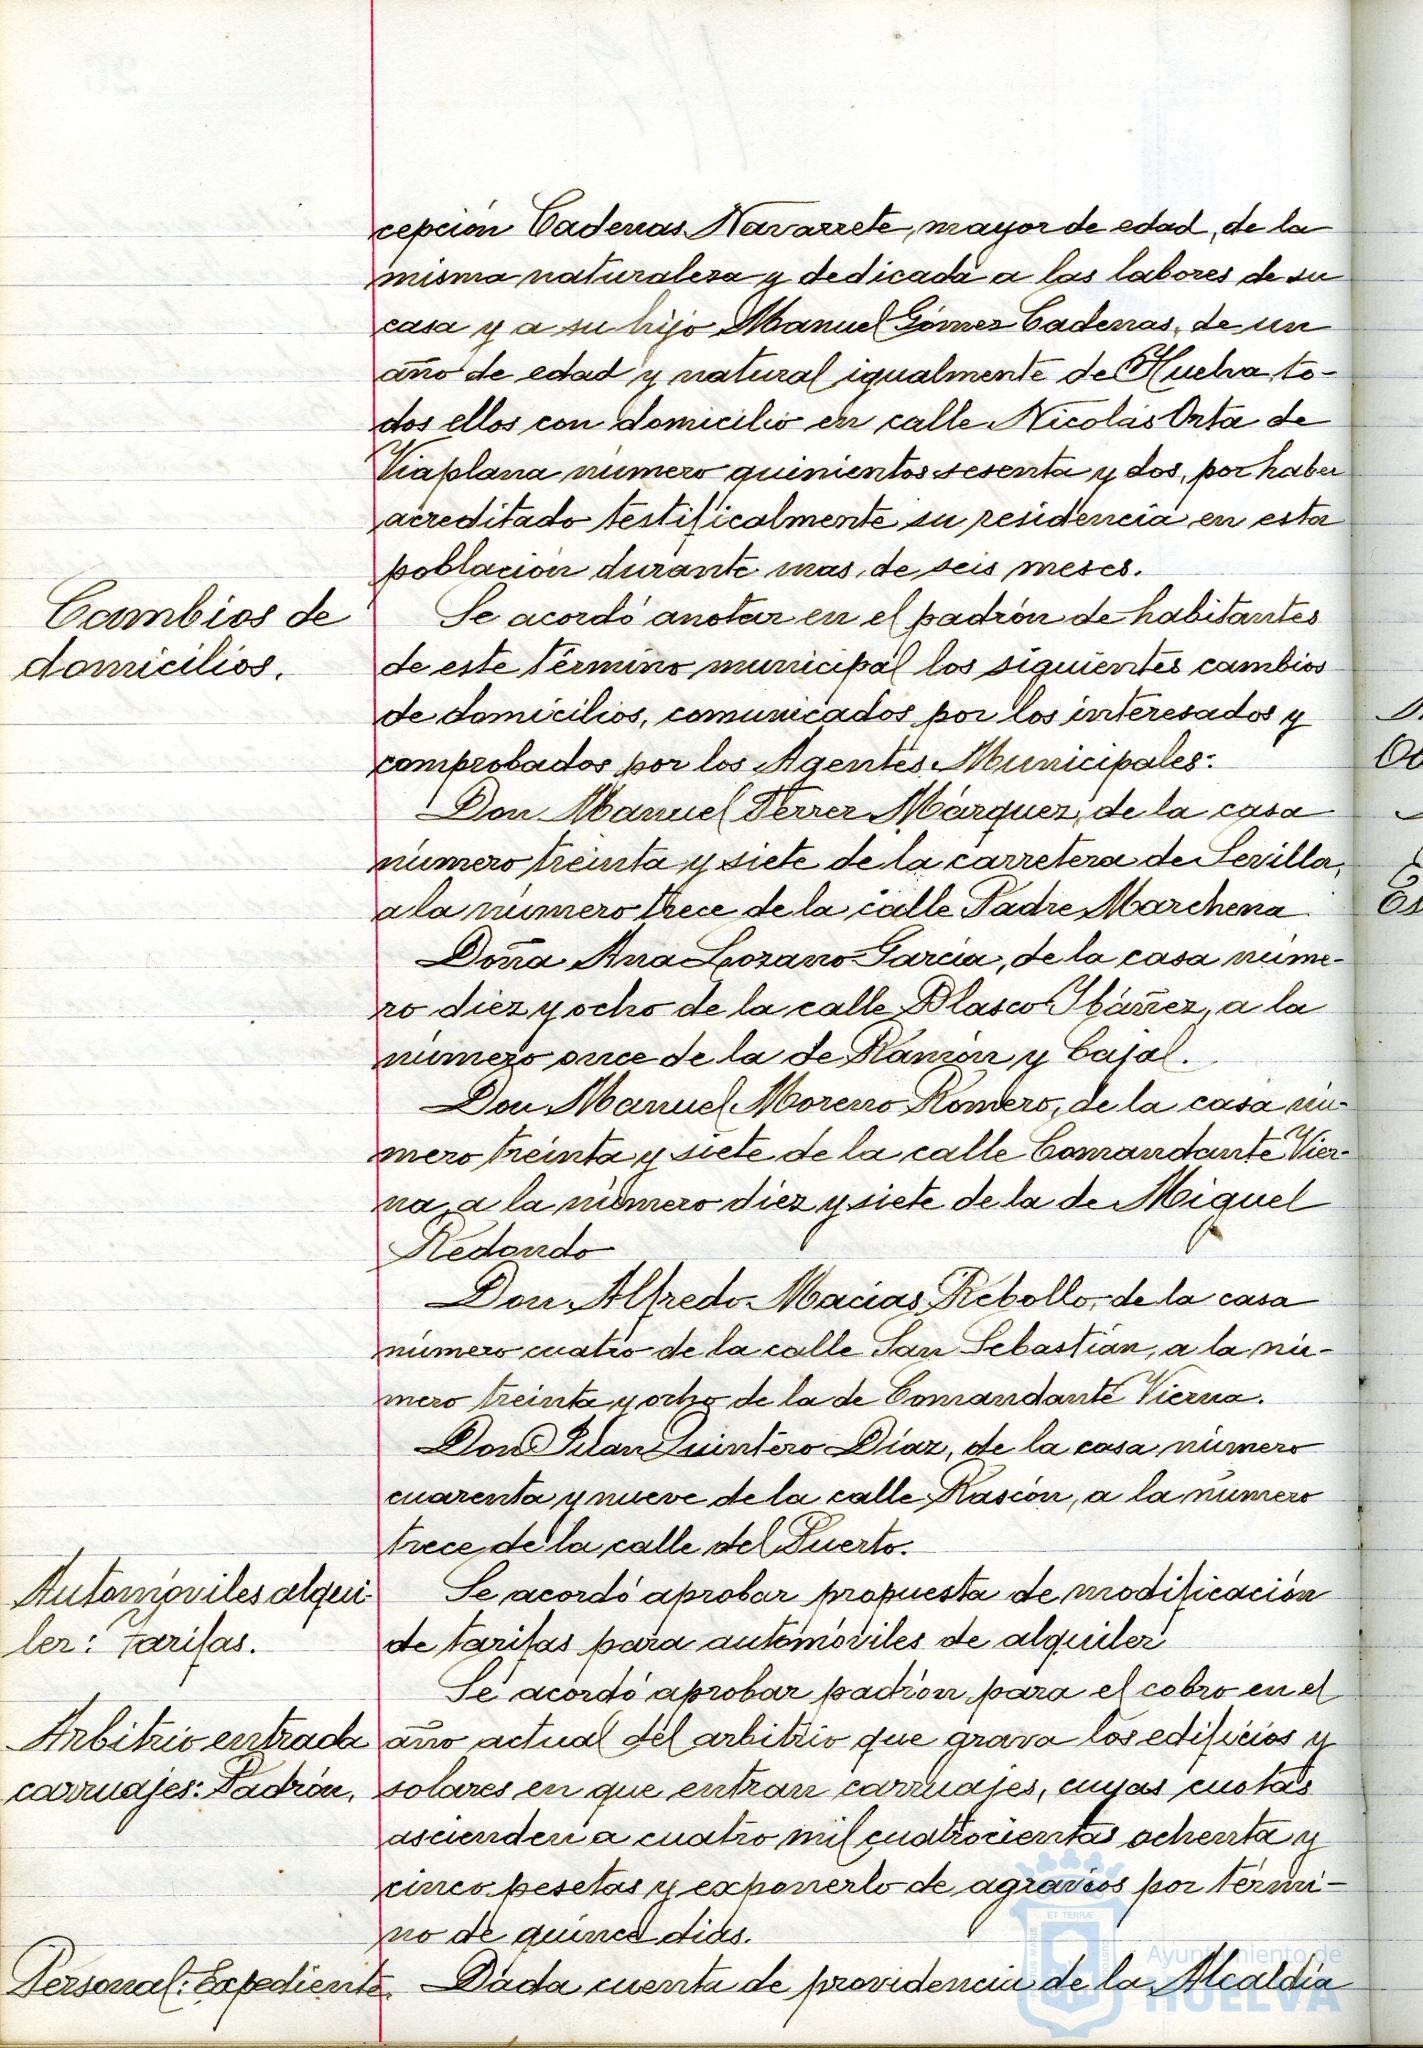 cepción Cadenas Navarrete, mayor de edad, de la
misma naturaleza y dedicada a las labores de su
casa y a su hijo Manuel Gómez Cadenas, de un
año de edad y natural igualmente de Huelva, to-
dos ellos con domicilio en calle Nicolás Orta de
Viaplana número quinientos sesenta y dos, por haber
acreditado testificalmente su residencia en esta
población durante mas de seis meses.
Cambios de
domicilios.
Se acordó anotar en el padrón de habitantes
de este término municipal los siguientes cambios
de domicilios, comunicados por los interesados y
comprobados por los Agentes Municipales:
Don Manuel Ferrer Márquez, de la casa
número treinta y siete de la carretera de Sevilla,
a la número trece de la calle Padre Marchena.
Doña Ana Lozano García, de la casa núme-
ro diez y ocho de la calle Blasco Ibáñez, a la
número once de la de Ramón y Cajal.
Don Manuel Moreno Romero, de la casa nú-
mero treinta y siete de la calle Comandante Vier-
na, a la número diez y siete de la de Miguel
Redondo
Don Alfredo Macias Rebollo, de la casa
número cuatro de la calle San Sebastián, a la nú-
mero treinta y ocho de la de Comandante Vierna.
Don Juan Quintero Díaz, de la casa número
cuarenta y nueve de la calle Rascón, a la número
trece de la calle del Puerto.
Automóviles alqui-
ler: Tarifas.
Se acordó aprobar propuesta de modificación
de tarifas para automóviles de alquiler
Arbitrio entrada
carruajes: Padrón.
Se acordó aprobar padrón para el cobro en el
año actual del arbitrio que grava los edificios y
solares en que entran carruajes, cuyas cuotas
ascienden a cuatro mil cuatrocientas ochenta y
cinco pesetas y exponerlo de agravios por térmi-
no de quince dias.
Personal: Expediente.
Dada cuenta de providencia de la Alcaldía
Ayuntamiento de
HUELVA